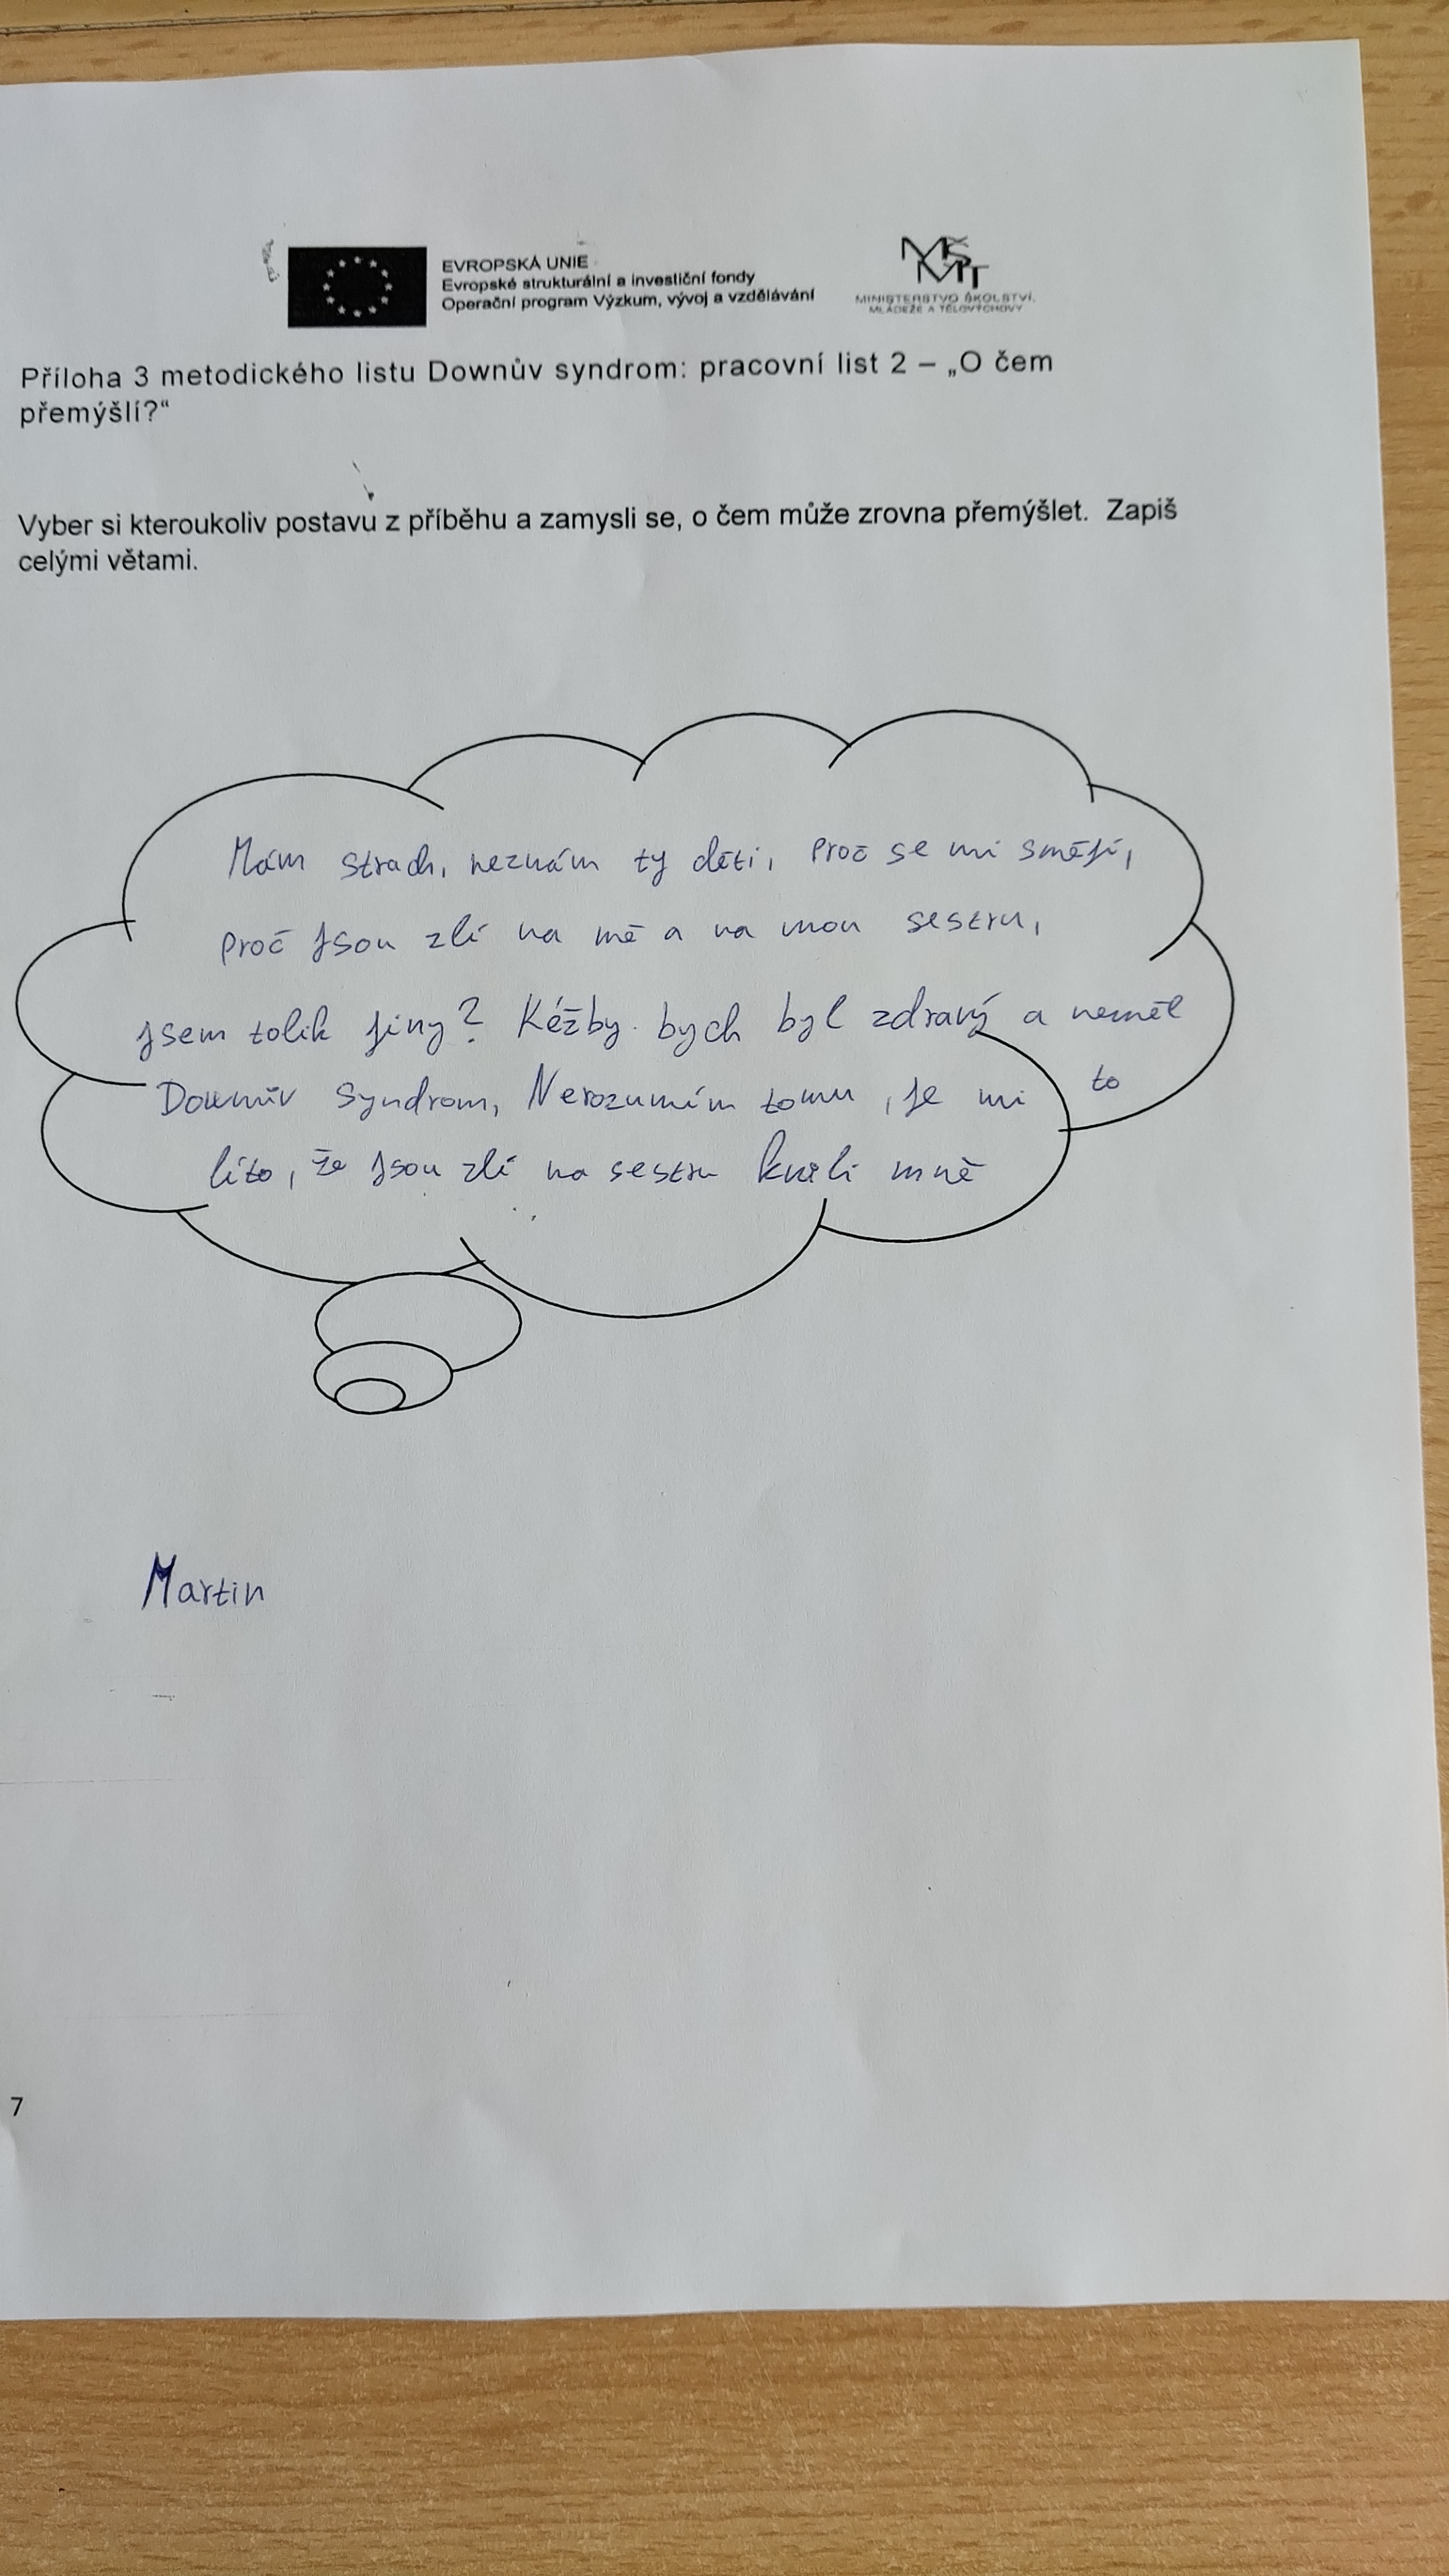 EVROPSKÁ UNIE
Evropské strukturální a investiční fondy
Operační program Výzkum, vývoj a vzdělávání
MŠMT
MINISTERSTVO ŠKOLSTVÍ,
MLÁDEŽE A TĚLOVÝCHOVY
Příloha 3 metodického listu Downův syndrom: pracovní list 2 – „O čem
přemýšlí?“
Vyber si kteroukoliv postavu z příběhu a zamysli se, o čem může zrovna přemýšlet. Zapiš
celými větami.
Mám strach, neznám ty děti, Proč se mi smějí,
Proč jsou zlí na mě a na mou sestru,
jsem tolik jiny? Kéžby bych byl zdravý a neměl
Downův syndrom, Nerozumím tomu, je mi to
líto, že jsou zlí na sestru kvůli mně
Martin
7